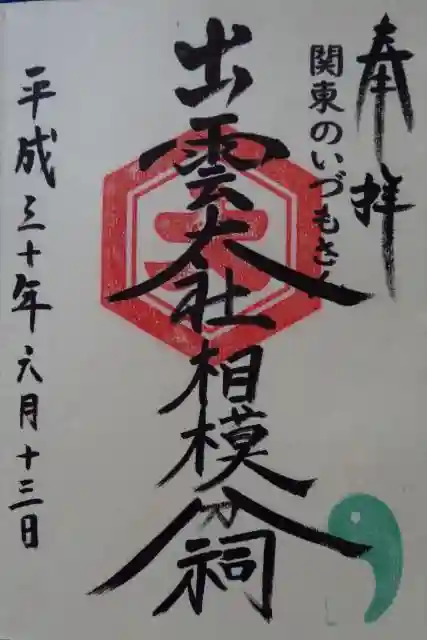 奉拝
関東のいづもさん
出雲大社相模分祠
大
平成三十年六月十三日